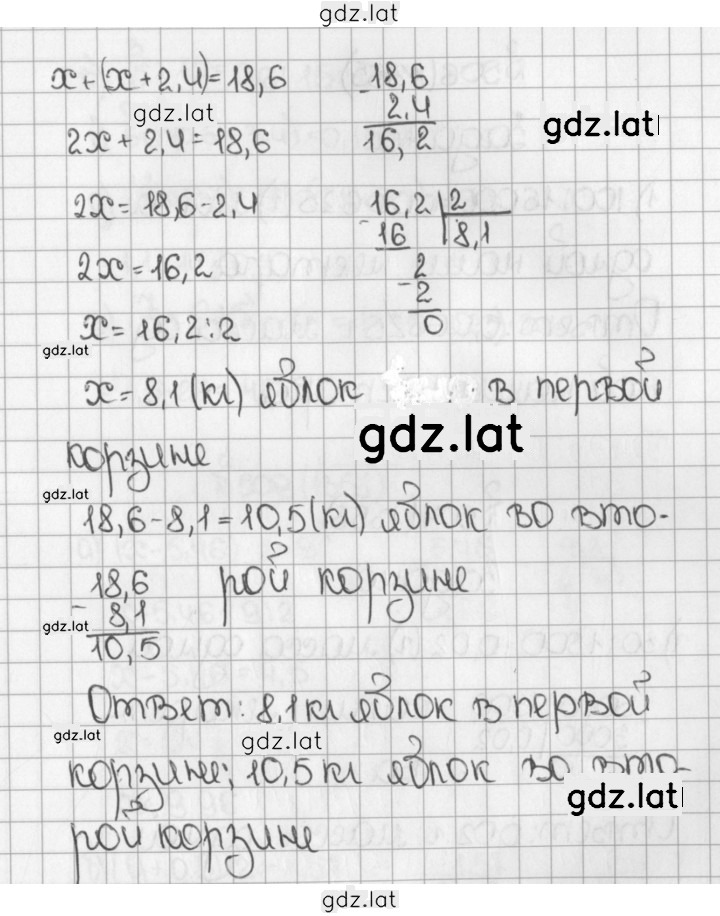 gdz.lat
x+(x+2,4)=18,6
18,6
gdz.lat
- 2,4
gdz.lat
2x+2,4=18,6
16,2
2x=18,6-2,4
16,2 | 2
- 16 | 8,1
2x=16,2
2
- 2
x=16,2:2
0
gdz.lat
x=8,1(кг) яблок в первой
gdz.lat
корзине
gdz.lat
18,6-8,1=10,5(кг) яблок во вто-
18,6 рой корзине
- 8,1
gdz.lat
10,5
Ответ: 8,1кг яблок в первой
gdz.lat
gdz.lat
корзине; 10,5кг яблок во вто-
gdz.lat
рой корзине
gdz.lat